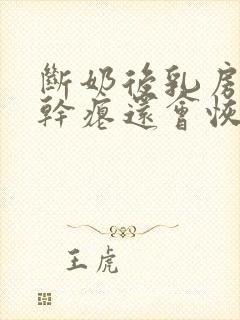 斷奶後乳房
幹癟還會恢
王虎